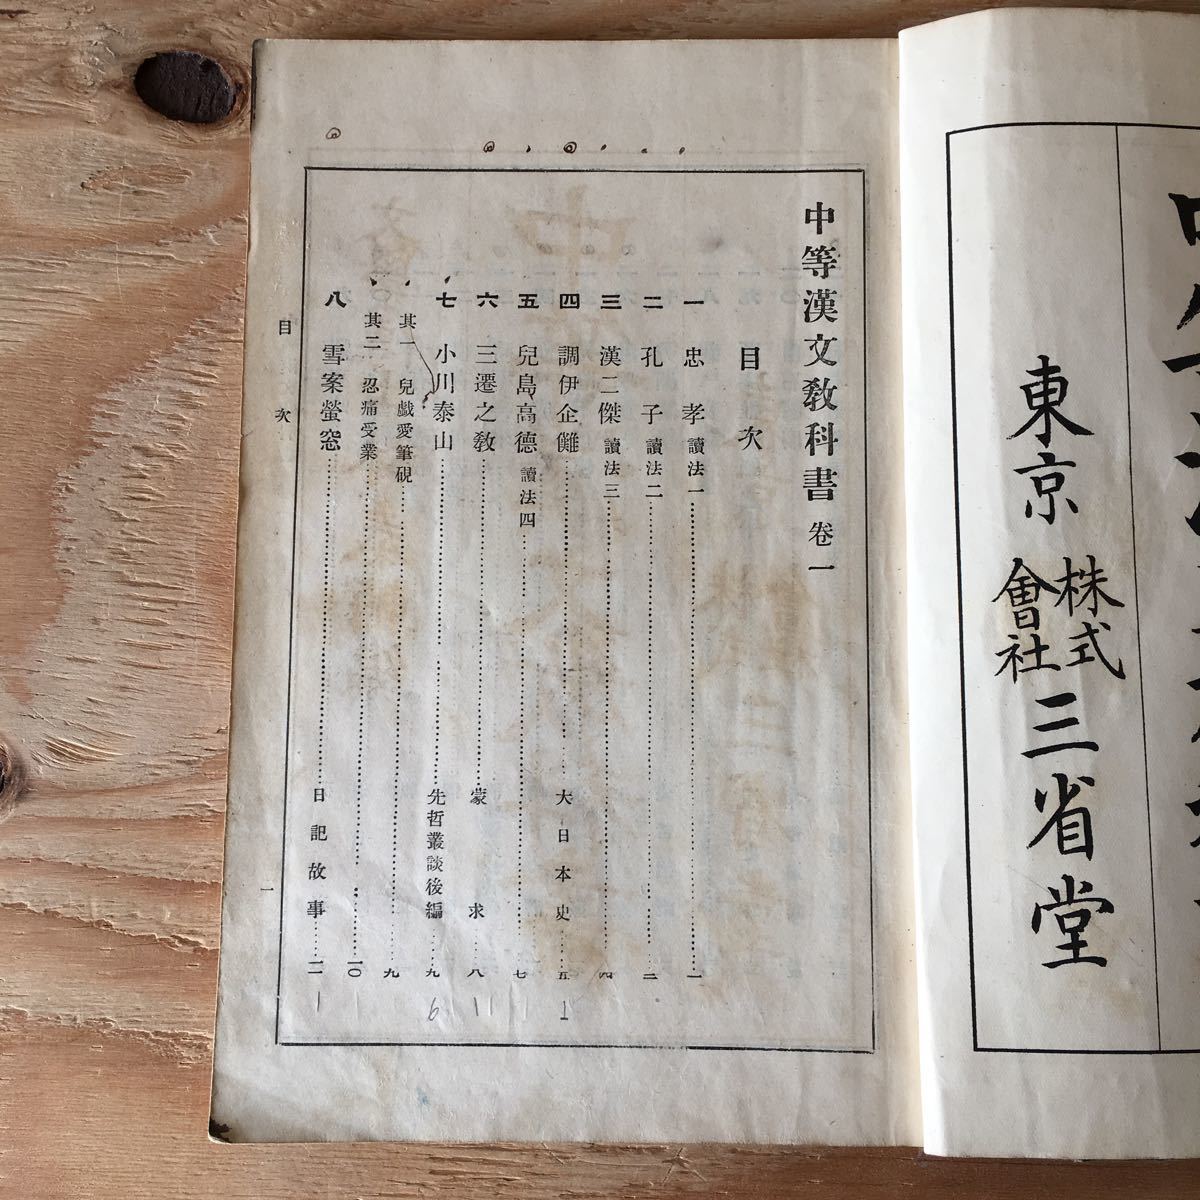 東京 株式會社 三省堂
中等漢文敎科書 卷一
目次
一 忠孝 讀法一 一
二 孔子 讀法二 二
三 漢二傑 讀法三 四
四 調伊企儺 大日本史 五
五 兒島高德 讀法四 七
六 三遷之敎 蒙求 八
七 小川泰山 先哲叢談後編 九
其一 兒戲愛筆硯 九
其二 忍痛受業 一〇
八 雪案螢窓 日記故事 一一
目次 一